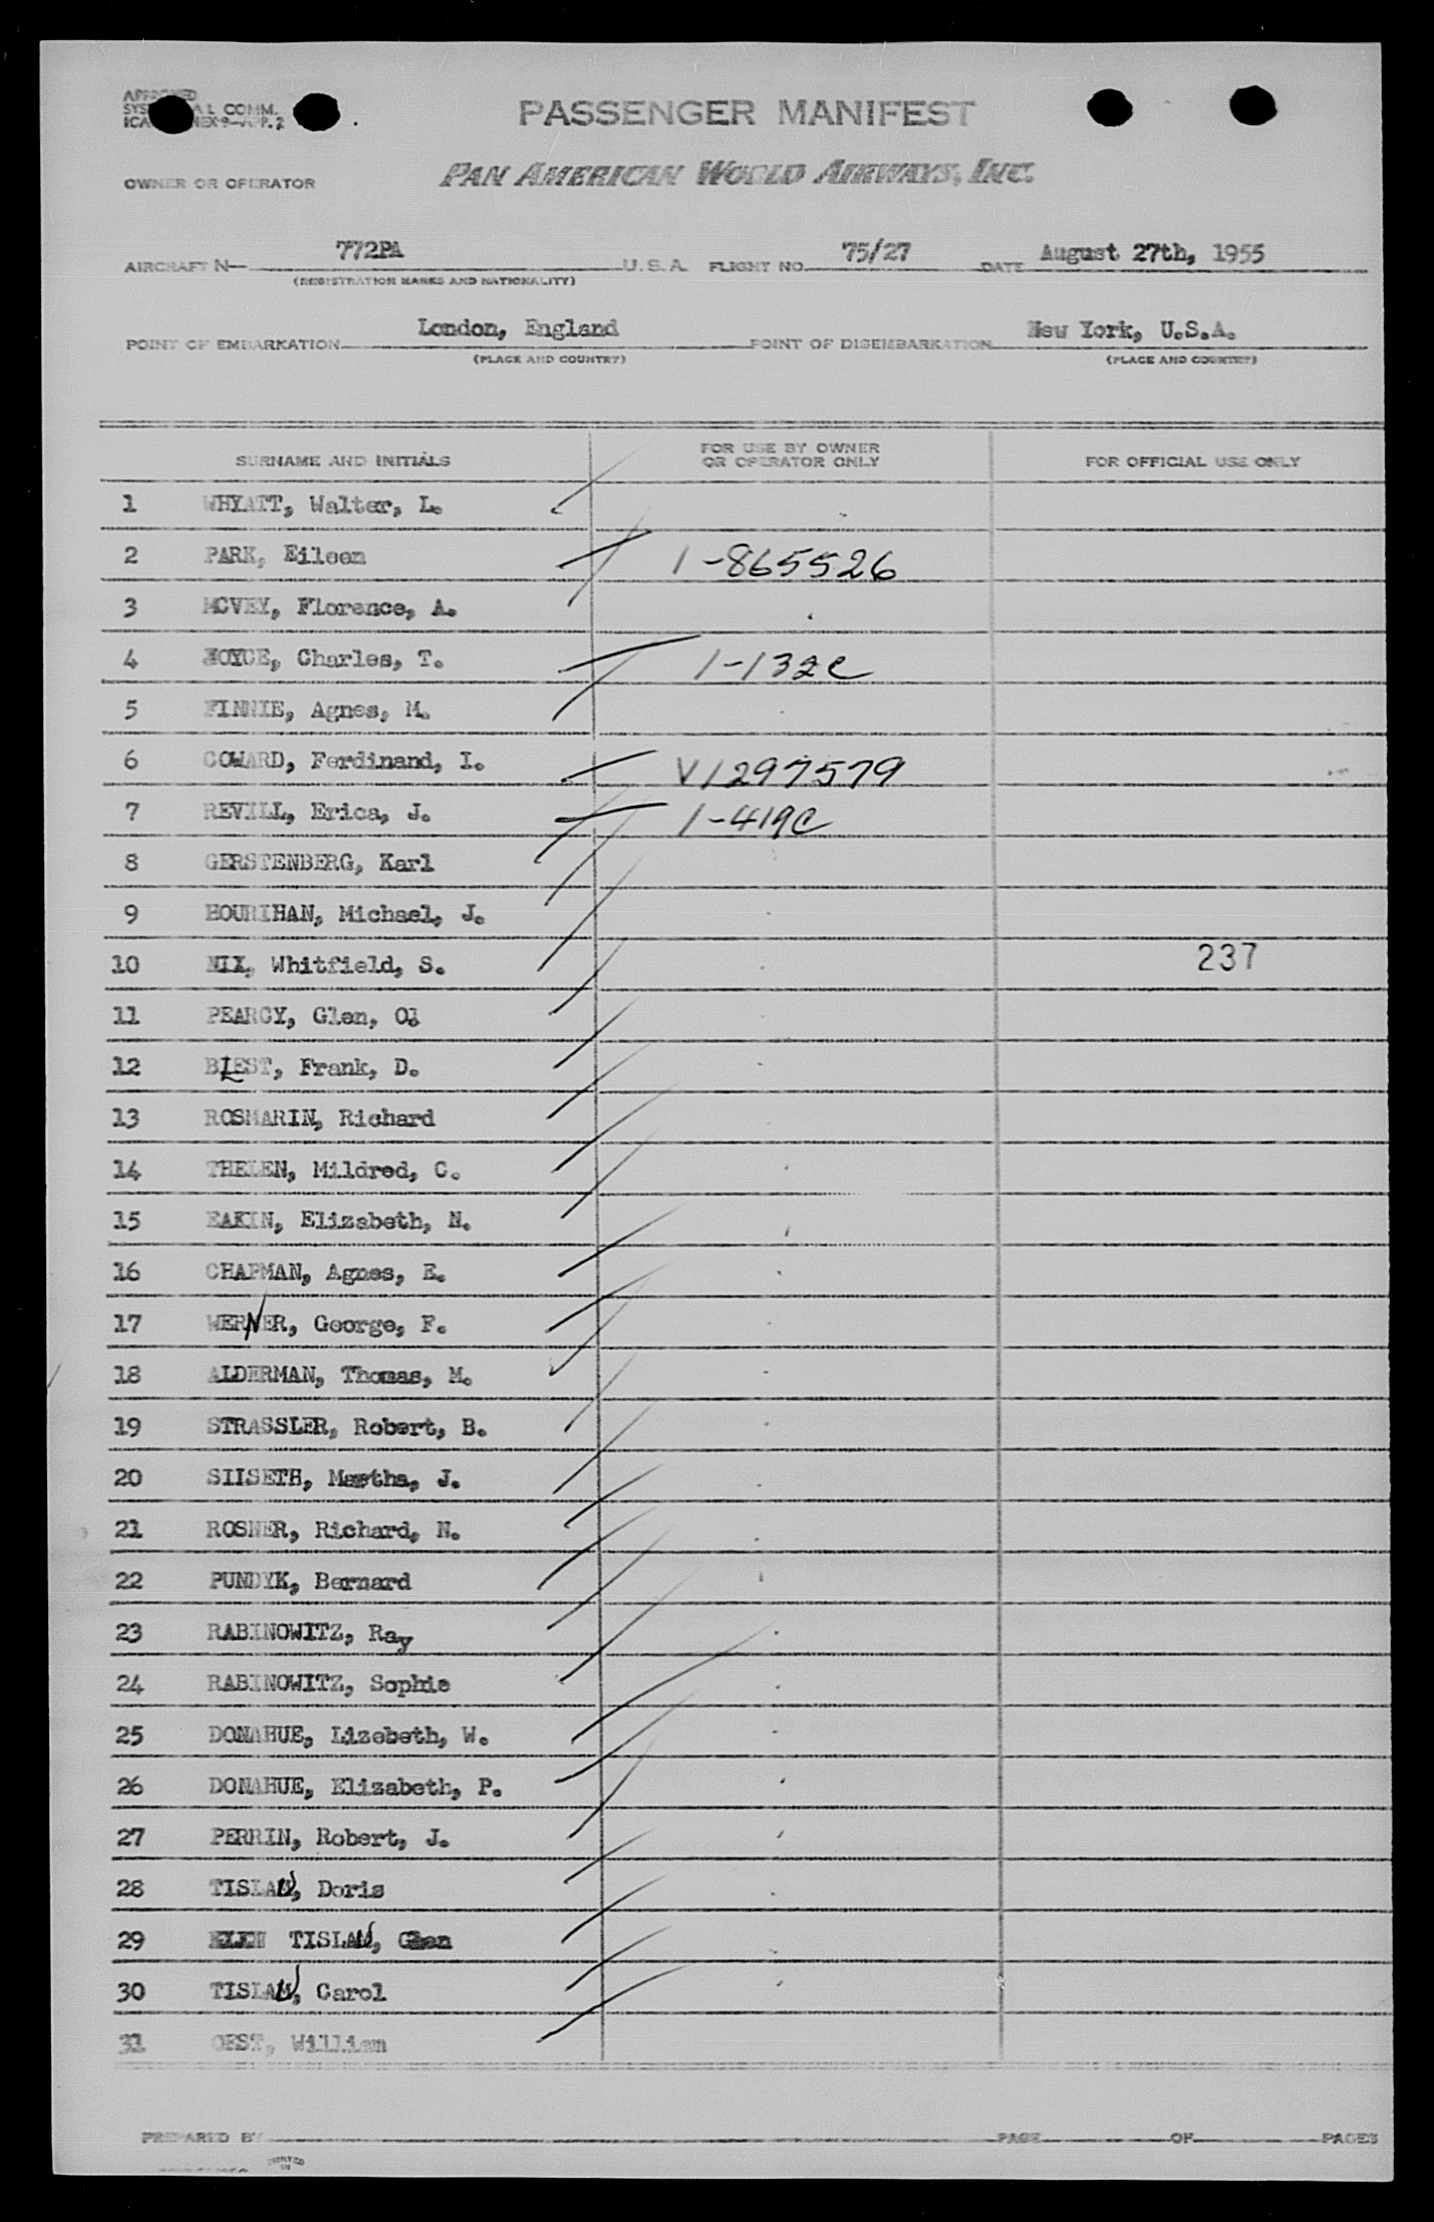 APPROVED
COMM.
PASSENGER MANIFEST
OWNER OR OPERATOR PAN AMERICAN WORLD AIRWAYS, INC.
AIRCRAFT N- 772PA U.S.A. FLIGHT NO. 75/27 DATE August 27th, 1955
(REGISTRATION MARKS AND NATIONALITY)
POINT OF EMBARKATION London, England POINT OF DISEMBARKATION New York, U.S.A.
(PLACE AND COUNTRY) (PLACE AND COUNTRY)
SURNAME AND INITIALS FOR USE BY OWNER OR OPERATOR ONLY FOR OFFICIAL USE ONLY
1 WHYATT, Walter, L.
2 PARK, Eileen 1-865526
3 MCVEY, Florence, A.
4 NOYCE, Charles, T. 1-132C
5 FINNIE, Agnes, M.
6 COWARD, Ferdinand, I. V1297579
7 REVILL, Erica, J. 1-419C
8 GERSTENBERG, Karl
9 HOURIHAN, Michael, J.
10 NIX, Whitfield, S. 237
11 PEARCY, Glen, O.
12 BLEST, Frank, D.
13 ROSMARIN, Richard
14 THELEN, Mildred, C.
15 EAKIN, Elizabeth, N.
16 CHAPMAN, Agnes, E.
17 WERNER, George, F.
18 ALDERMAN, Thomas, M.
19 STRASSLER, Robert, B.
20 SIISETH, Martha, J.
21 ROSNER, Richard, N.
22 PUNDYK, Bernard
23 RABINOWITZ, Ray
24 RABINOWITZ, Sophie
25 DONAHUE, Lizebeth, W.
26 DONAHUE, Elizabeth, P.
27 PERRIN, Robert, J.
28 TISLAU, Doris
29 TISLAU, Glen
30 TISLAU, Carol
31 OEST, William
PREPARED BY PAGE OF PAGES